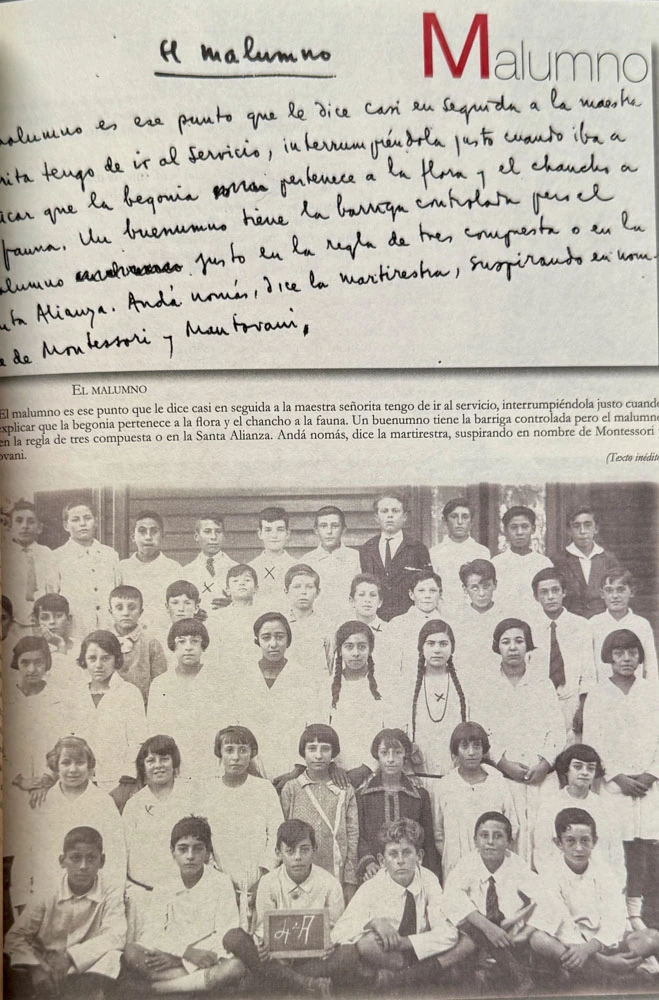 El malumno
Malumno
malumno es ese punto que le dice casi en seguida a la maestra
rita tengo de ir al servicio, interrumpiéndola justo cuando iba a
icar que la begonia pertenece a la flora y el chancho a
fauna. Un buenumno tiene la barriga controlada pero el
alumno justo en la regla de tres compuesta o en la
nta Alianza. Andá nomás, dice la martirestra, suspirando en nom-
e de Montessori y Mantovani.
EL MALUMNO
El malumno es ese punto que le dice casi en seguida a la maestra señorita tengo de ir al servicio, interrumpiéndola justo cuando
explicar que la begonia pertenece a la flora y el chancho a la fauna. Un buenumno tiene la barriga controlada pero el malumno
en la regla de tres compuesta o en la Santa Alianza. Andá nomás, dice la martirestra, suspirando en nombre de Montessori y
ovani.
(Texto inédito
4º A